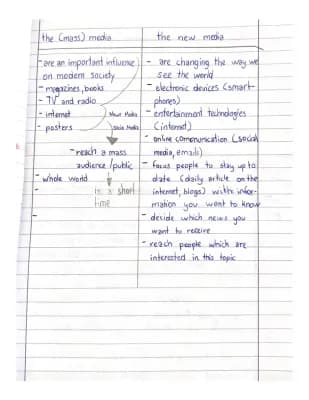 the (mass) media
- are an important influence
on modern society
- magazines, books
- TV and radio
- internet
- posters
News Media
Social Media
- reach a mass
audience / public
- whole world
in a short
time
-
-
the new media
- are changing the way we
see the world
- electronic devices (smart-
phones)
- entertainment technologies
(internet)
- online communication (social
media, emails)
- focus people to stay up to
date (daily article on the
internet, blogs) with infor-
mation you want to know
- decide which news you
want to receive
- reach people which are
interested in this topic